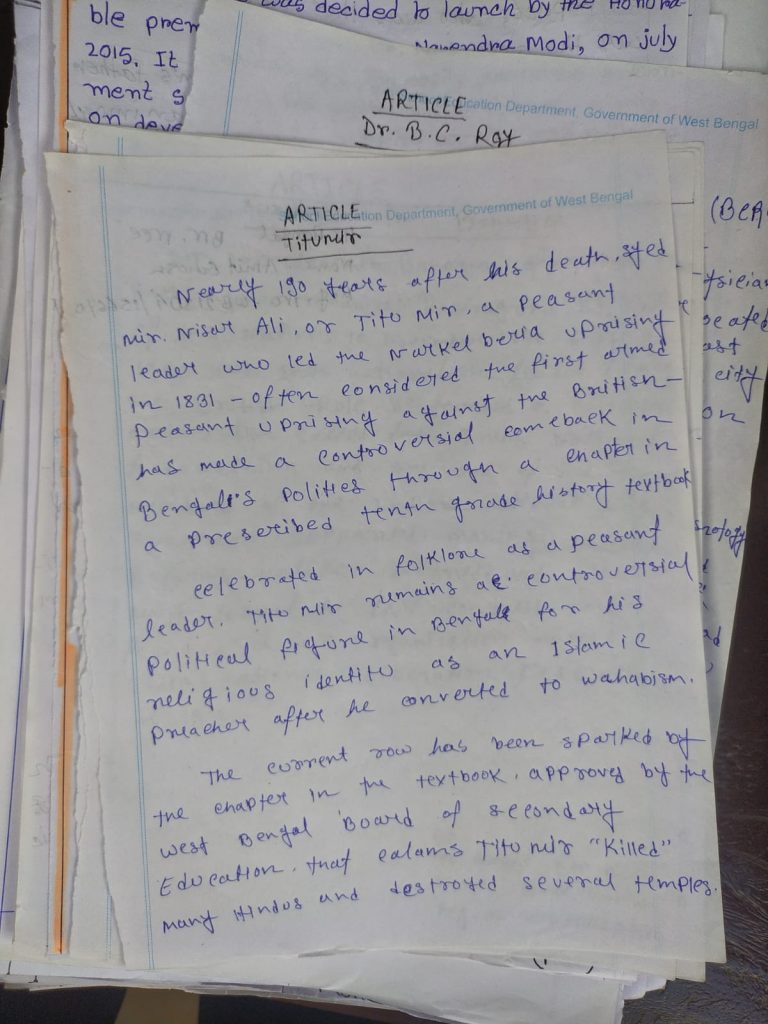 was decided to launch by the Honora-
ble prem
Narendra Modi, on july
2015. It
ment s
on deve
ARTICLE
cation Department, Government of West Bengal
Dr. B.C. Roy
ARTICLE
tion Department, Government of West Bengal
Titumir
Nearly 190 years after his death, syed
mir. Nisar Ali, or Titu Mir, a peasant
leader who led the Narkel beria uprising
in 1831 - often considered the first armed
peasant uprising against the British-
has made a controversial comeback in
Bengal's politics through a chapter in
a prescribed tenth grade history textbook
celebrated in folklore as a peasant
leader. Titu Mir remains a controversial
political figure in Bengal for his
religious identity as an Islamic
preacher after he converted to wahabism.
The current row has been sparked by
the chapter in the textbook. approved by the
west Bengal Board of secondary
Education. that calams Titu mir "Killed"
many Hindus and destroyed several temples.
(BER
ysicia
e
ast
city
on